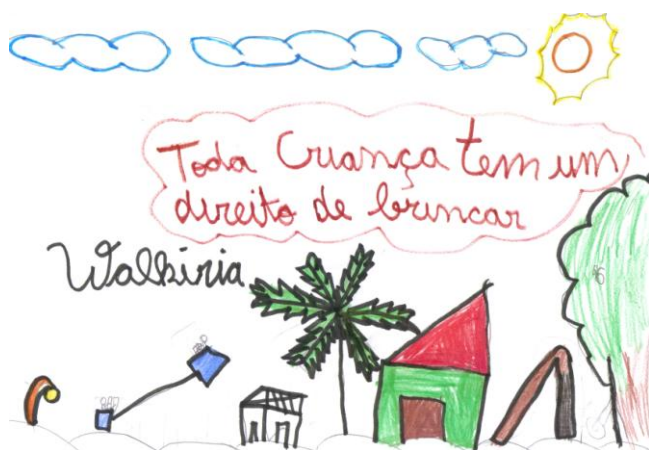 Toda Criança tem um
direito de brincar
Walkiria